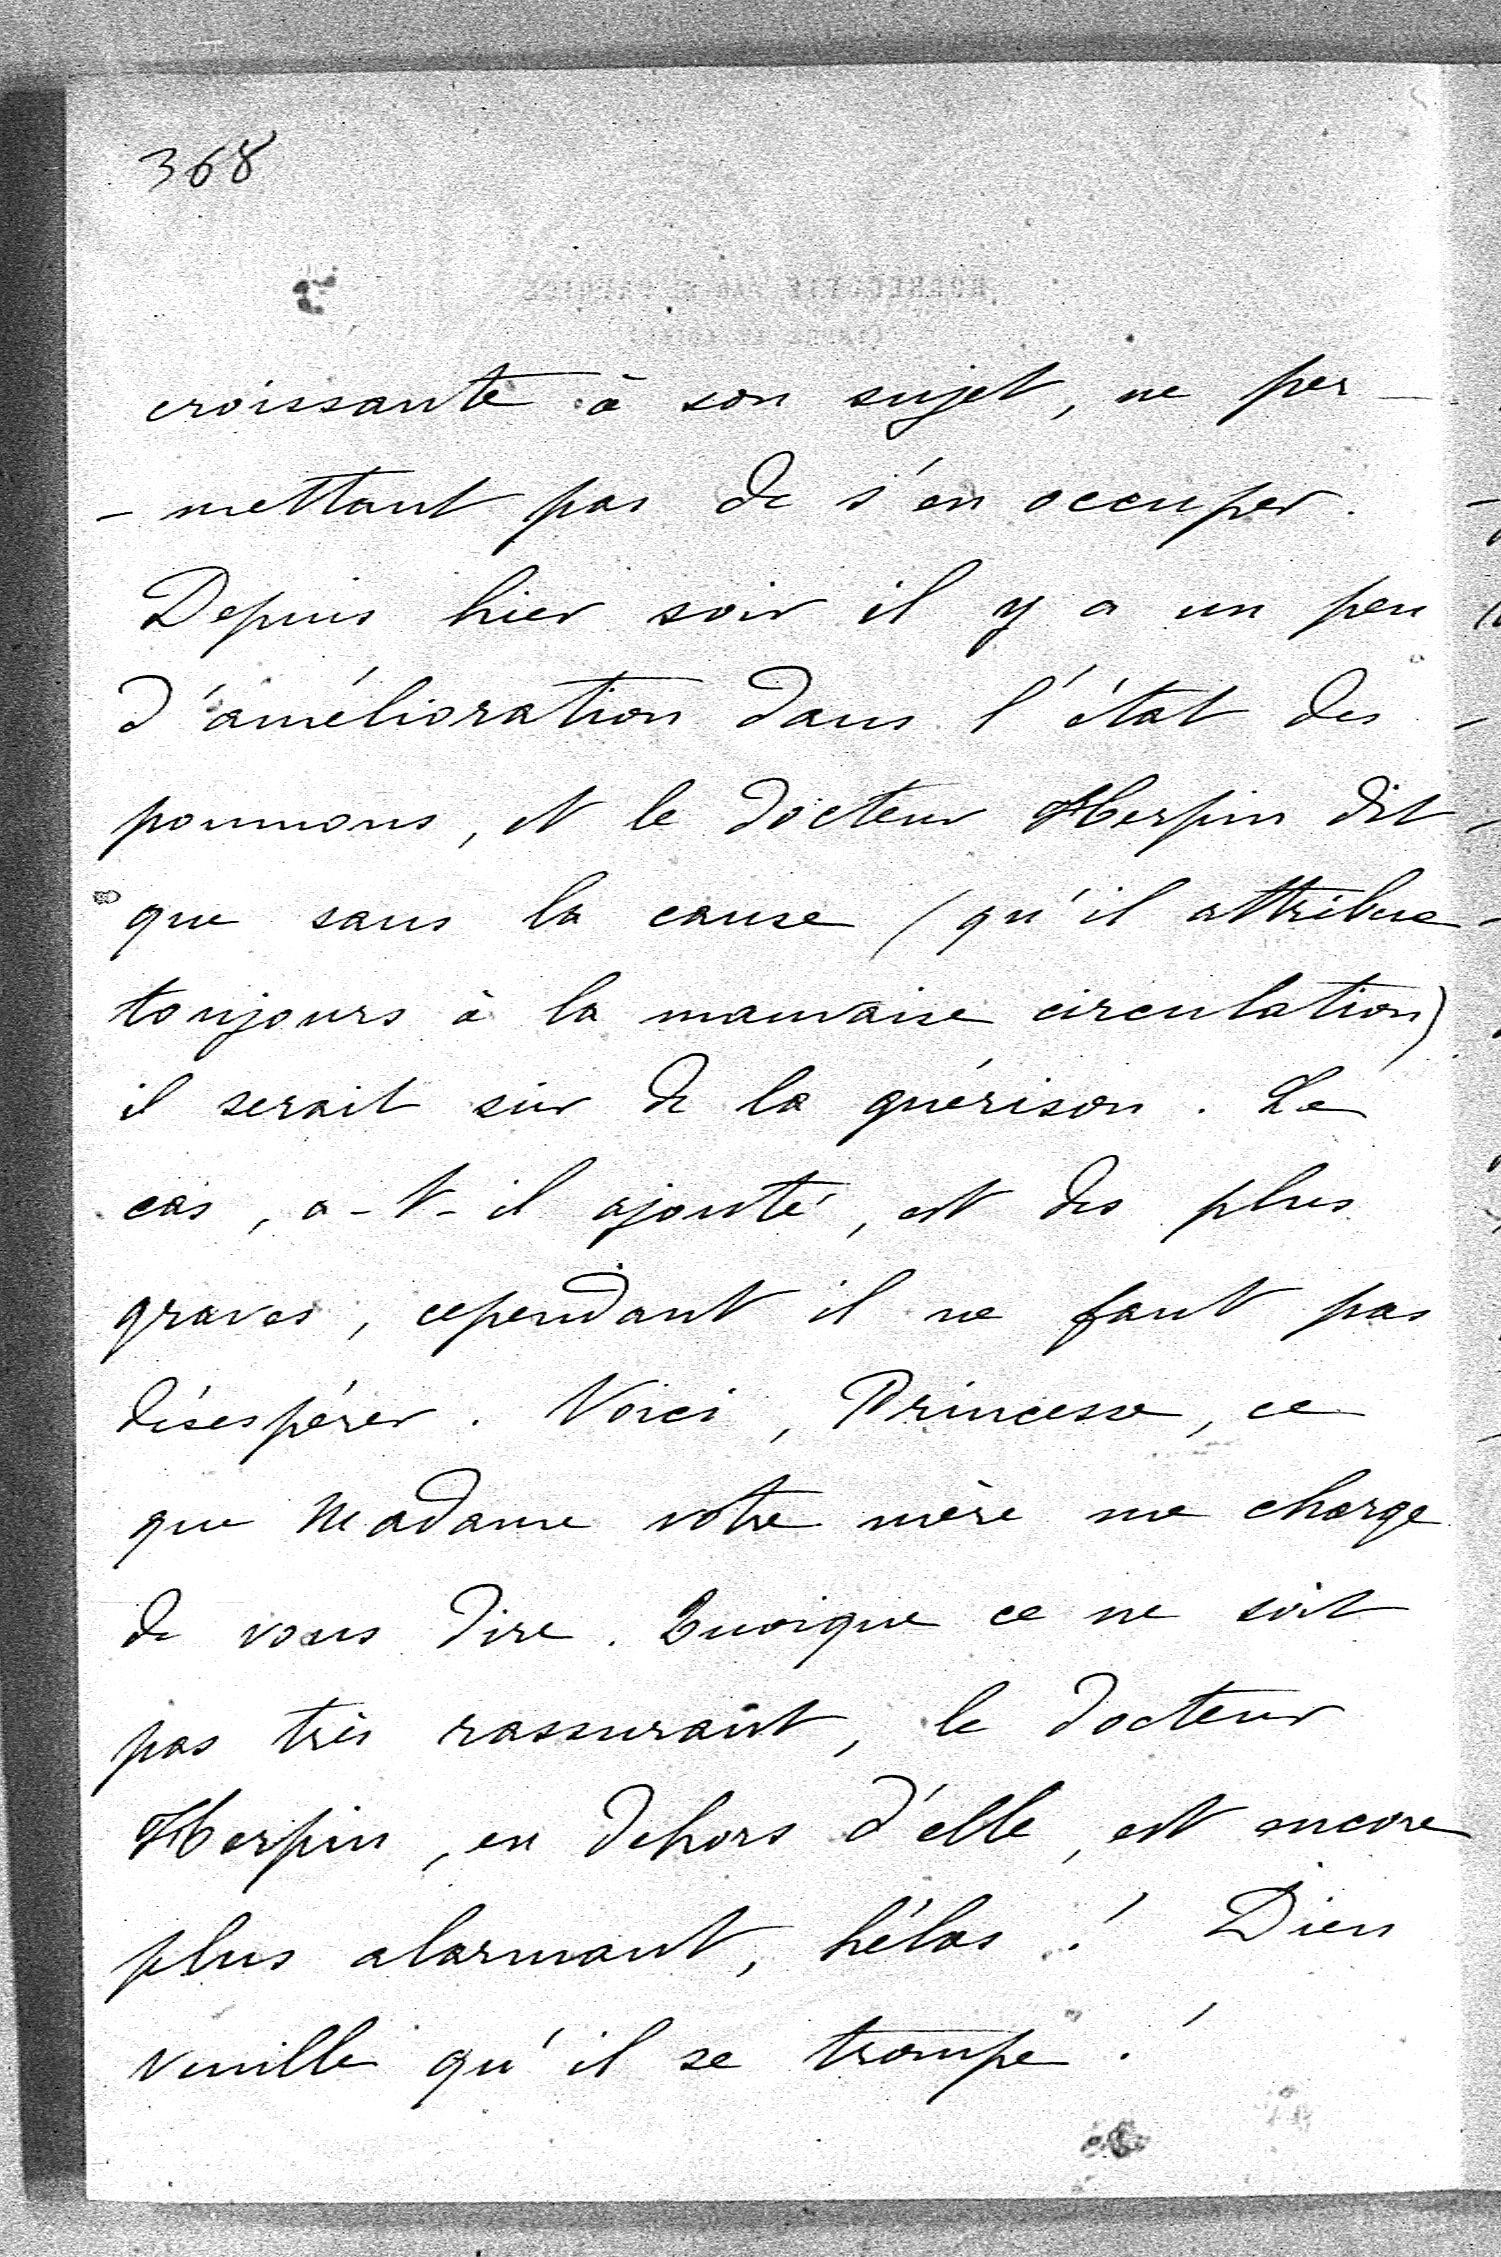 368
croissante à son sujet, ne per-
-mettant pas de s'en occuper.
Depuis hier soir il y a un peu
d'amélioration dans l'état des
poumons, et le docteur Herpin dit
que sans la cause (qu'il attribue
toujours à la mauvaise circulation)
il serait sûr de la guérison. Le
cas, a-t-il ajouté, est des plus
graves, cependant il ne faut pas
désespérer. Voici, Princesse, ce
que Madame votre mère me charge
de vous dire. Quoique ce ne soit
pas très rassurant, le docteur
Herpin, en dehors d'elle, est encore
plus alarmant, hélas! Dieu
veuille qu'il se trompe!